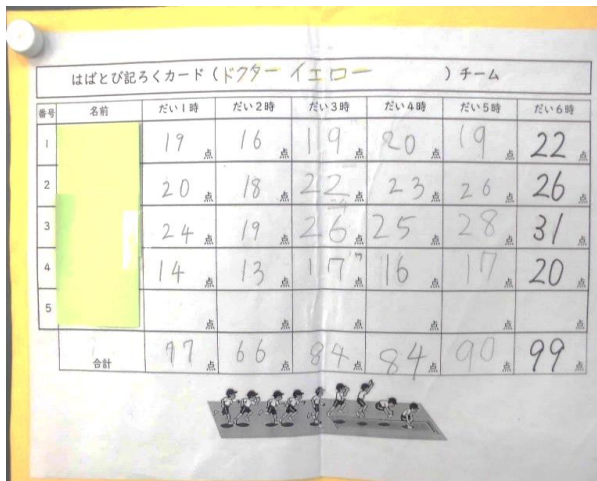 はばとび記ろくカード(ドクターイエロー)チーム
番号 名前 だい1時 だい2時 だい3時 だい4時 だい5時 だい6時
1 19点 16点 19点 20点 19点 22点
2 20点 18点 22点 23点 26点 26点
3 24点 19点 26点 25点 28点 31点
4 14点 13点 17点 16点 17点 20点
5 点 点 点 点 点 点
合計 77点 66点 84点 84点 90点 99点